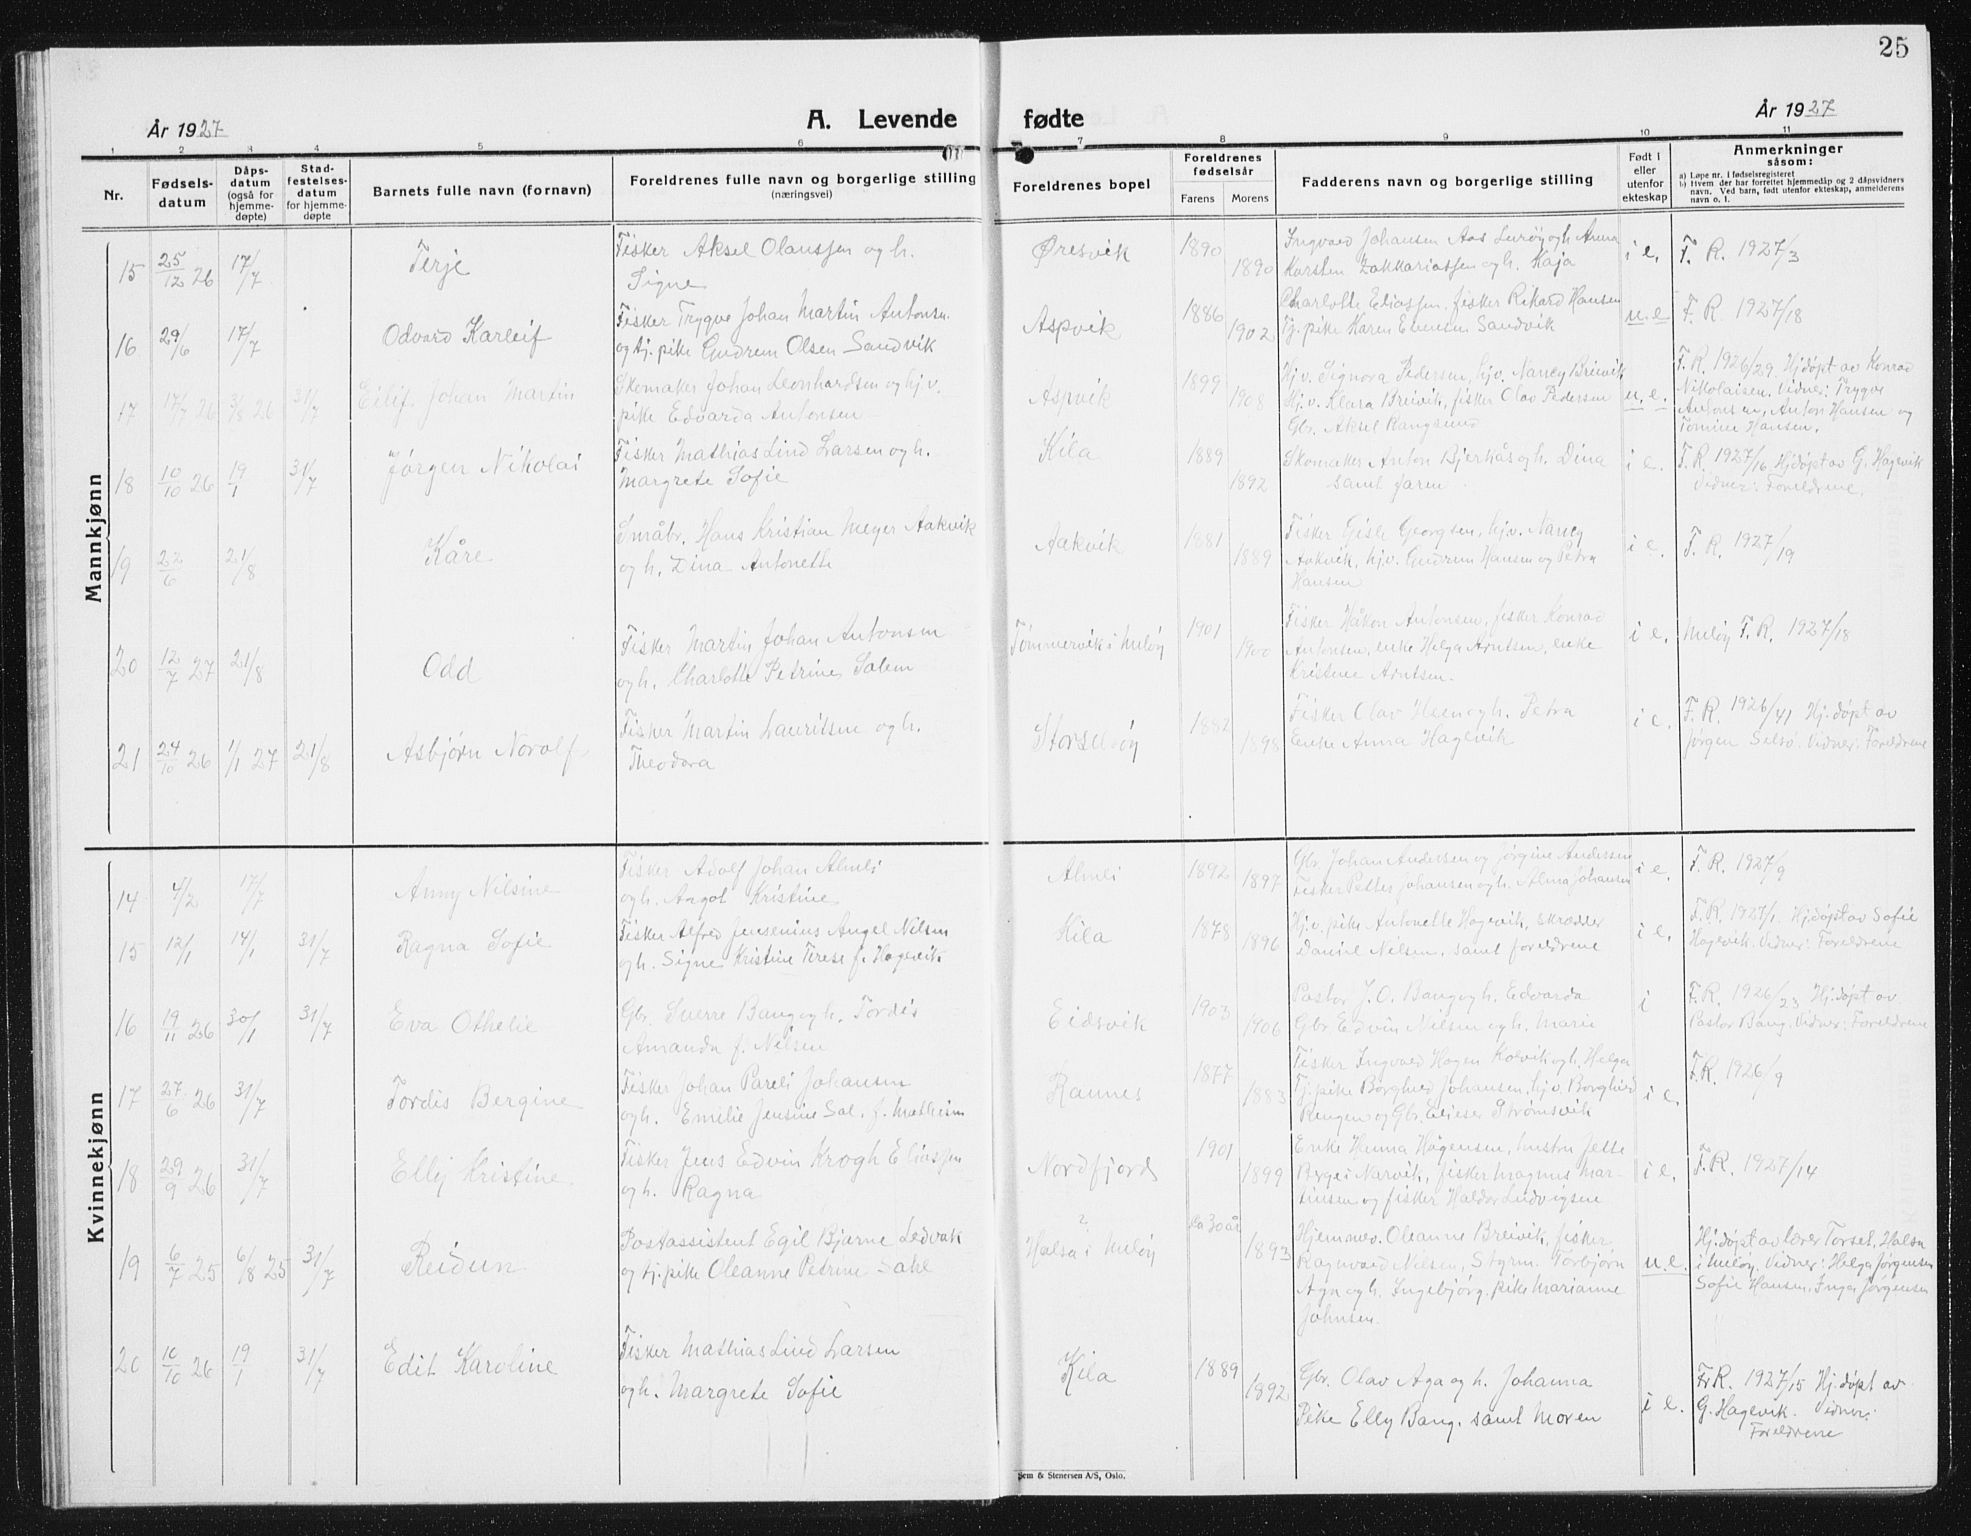 25
År 1927
A. Levende fødte
År 1927
1 2 3 4 5 6 7 8 9 10 11
Nr.
Fødsels-
datum
Dåps-
datum
(også for
hjemme-
døpte)
Stad-
festelses-
datum
for hjemme-
døpte
Barnets fulle navn (fornavn)
Foreldrenes fulle navn og borgerlige stilling
(næringsvei)
Foreldrenes bopel
Foreldrenes
fødselsår
Farens Morens
Fadderens navn og borgerlige stilling
Født i
eller
utenfor
ekteskap
Anmerkninger
såsom:
a) Løpe nr. i fødselsregisteret
b) Hvem der har forrettet hjemmedåp og 2 dåpsvidners
navn. Ved barn, født utenfor ekteskap, anmelderens
navn o. l.
Mannkjønn
15 25/12 26 17/7 Terje
Fisker Aksel Olaussen og h.
Signe
Øresvik 1890 1890
Ingvald Johansen Aas Lurøy og h. Anna
Karsten Zakkariassen og h. Kaja
i e. F. R. 1927/3
16 29/6 17/7 Odvard Karleif
Fisker Trygve Johan Martin Antonsen
og tj. pike Gudrun Olsen Sandvik
Aspvik 1886 1902
Charlotte Eliassen, fisker Rikard Hansen
Tj. pike Karen Evensen Sandvik
u. e F. R. 1927/18
17 17/7 26 3/8 26 31/7 Eilif Johan Martin
Skomaker Johan Leonhardsen og hj.v.
pike Edvarda Antonsen
Aspvik 1899 1908
Hj.v. Signora Pedersen, hj.v. Nancy Breivik
Hj.v. Klara Breivik, fisker Olav Pedersen
Gbr. Aksel Rangsund
u. e.
F. R. 1926/29 Hj.døpt av Konrad
Nikolaisen. Vidner: Trygve
Antonsen, Anton Hansen og
Tomine Hansen.
18 10/10 26 19/1 31/7 Jørgen Nikolai
Fisker Mathias Lind Larsen og h.
Margrete Sofie
Kila 1889 1892
Skomaker Anton Bjerkås og h. Dina
samt faren
i e.
F. R. 1927/16 Hj.døpt av G. Hagevik
Vidner: Foreldrene.
19 22/6 21/8 Kåre
Småbr. Hans Kristian Meyer Aakvik
og h. Dina Antonette
Aakvik 1881 1889
Fisker Gisle Georgsen, hj.v. Nancy
Aakvik, hj.v. Gudrun Hansen og Petra
Hansen
i e. F. R. 1927/19
20 12/7 27 21/8 Odd
Fisker Martin Johan Antonsen
og h. Charlotte Petrine Salem
Tømmervik i Meløy 1901 1900
Fisker Håkon Antonsen, fisker Konrad
Antonsen, enke Helga Arntsen, enke
Kristine Arntsen.
i e. Meløy F. R. 1927/18
21 24/10 26 1/1 27 21/8 Asbjørn Norolf
Fisker Martin Lauritsen og h.
Theodora
Storselsøy 1882 1898
Fisker Olav Hein og h. Petra
Enke Anna Hagevik
i e.
F. R. 1926/41 Hj.døpt av
Jørgen Selsø. Vidner: Foreldrene
Kvinnekjønn
14 4/2 17/7 Anny Nilsine
Fisker Adolf Johan Almli
og h. Angot Kristine
Almli 1892 1897
Gbr. Johan Andersen og Jørgine Andersen
Fisker Petter Johansen og h. Alma Johansen
i e. F. R. 1927/9
15 12/1 14/1 31/7 Ragna Sofie
Fisker Alfred Jensenius Angel Nilsen
og h. Signe Kristine Terese f. Hagevik
Kila 1878 1896
Hj.v. pike Antonette Hagevik, skredder
Daniel Nilsen, samt foreldrene
i e.
F. R. 1927/1. Hj.døpt av Sofie
Hagevik. Vidner: Foreldrene
16 19/11 26 30/1 31/7 Eva Othelie
Gbr. Sverre Bang og h. Tordis
Amanda f. Nilsen
Eidsvik 1903 1906
Pastor J. O. Bang og h. Edvarda
Gbr. Edvin Nilsen og h. Marie
i
F. R. 1926/23 Hj.døpt av
Pastor Bang. Vidner: Foreldrene
17 27/6 26 31/7 Tordis Bergine
Fisker Johan Pareli Johansen
og h. Emilie Jensine Sal. f. Mathisen
Rannes 1877 1883
Fisker Ingvald Hagen Kolvik og h. Helga
Tj. pike Borghild Johansen, hj.v. Borghild
Rengen og Gbr. Elieser Strømsvik
i e. F. R. 1926/9
18 29/9 26 31/7 Elly Kristine
Fisker Jens Edvin Krogh Eliassen
og h. Ragna
Nordfjord 1901 1899
Enke Henna Hågensen, hustru Jette
Berge i Narvik, fisker Magnus Mar-
tinsen og fisker Haldor Ludvigsen
i e. F. R. 1927/14
19 6/7 25 6/8 25 31/7 Reidun
Postassistent Egil Bjarne Ledvak
og tj. pike Oleanne Petrine Sahl
? Halsa i Meløy ca 30 år 1893
Hjemmev. Oleanne Breivik, fisker
Ragnvald Nilsen, Styrm. Torbjørn
Aga og h. Ingebjørg, pike Marianne
Johnsen.
u. e.
Hj.døpt av lærer Torset, Halsa
i Meløy. Vidner: Helga Jørgensen
Sofie Hansen, Inga Jørgensen
20 10/10 26 19/1 31/7 Edit Karoline
Fisker Mathias Lind Larsen
og h. Margrete Sofie
Kila 1889 1892
Gbr. Olav Aga og h. Johanna
Pike Elly Bang. samt Moren
i e.
F. R. 1927/15 Hj.døpt av
G. Hagevik. Vidner:
Foreldrene
Sem & Stenersen A/S, Oslo.